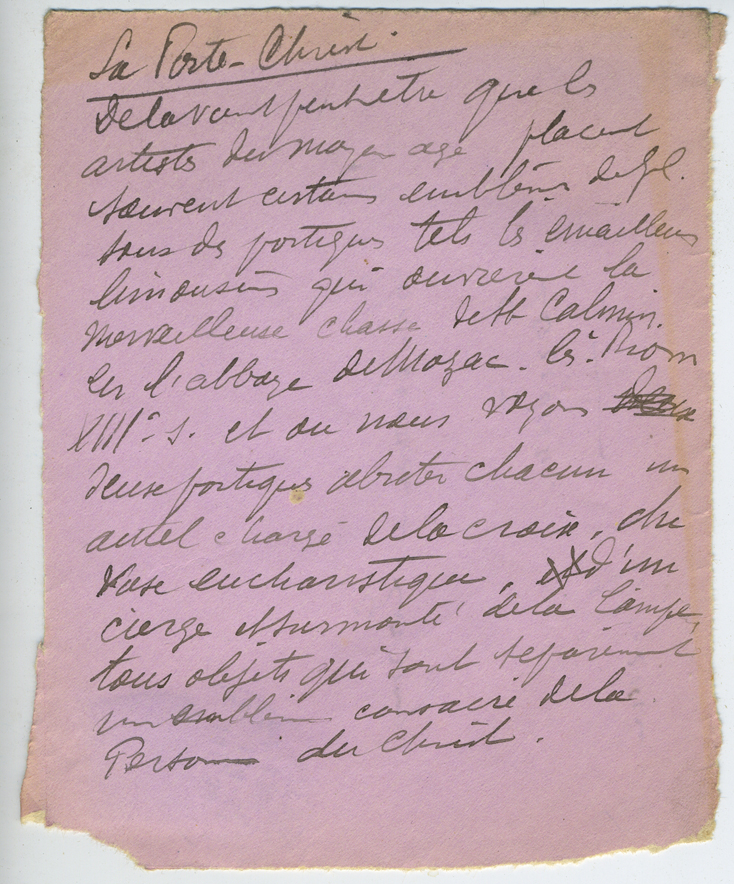 La Porte-Christ.
De la vient peut etre que les
artistes du moyen age placent
souvent certains emblèmes de J.C.
sous des portiques tels les émailleurs
limousins qui ouvrèrent la
merveilleuse chasse de St Calmin.
de l'abbaye de Mozac. les. Riom
XIIIe s. et ou nous voyons
deux portiques abriter chacun un
autel chargé de la croix, du
vase eucharistique, d'un
cierge et surmonté de la lampe,
tous objets qui sont séparément
un emblème consacré de la
Personne du Christ.